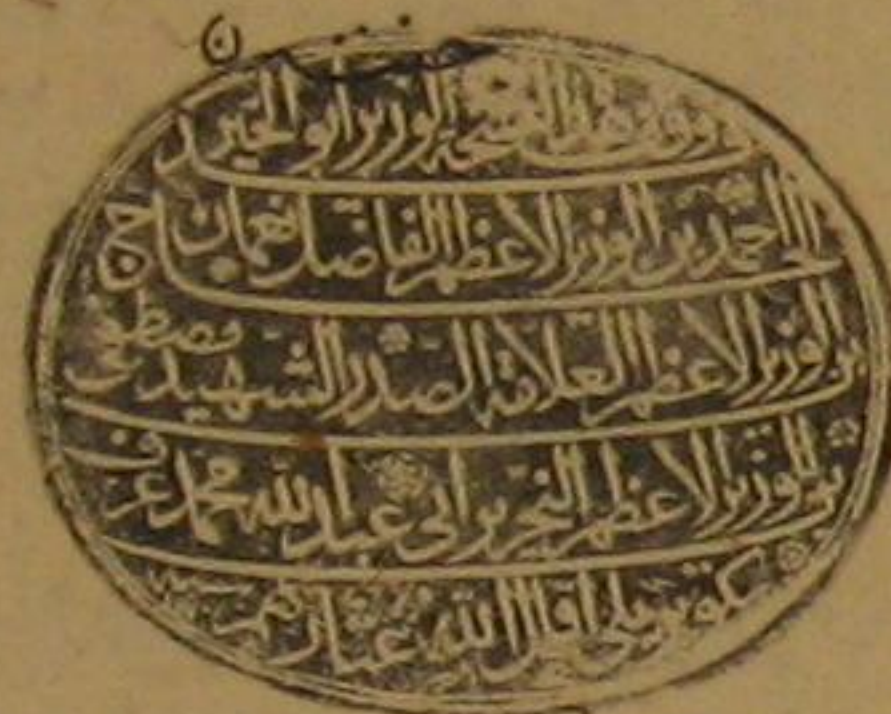 وقف هذه النسخة الوزير أبو الخير
الحاج احمد بن الوزير الاعظم الفاضل نعمان
بن الوزير الاعظم العلامة الصدر الشهيد مصطفى
بن الوزير الاعظم النحرير ابى عبد الله محمد عرف
بكوپريلى اقال الله عثارهم